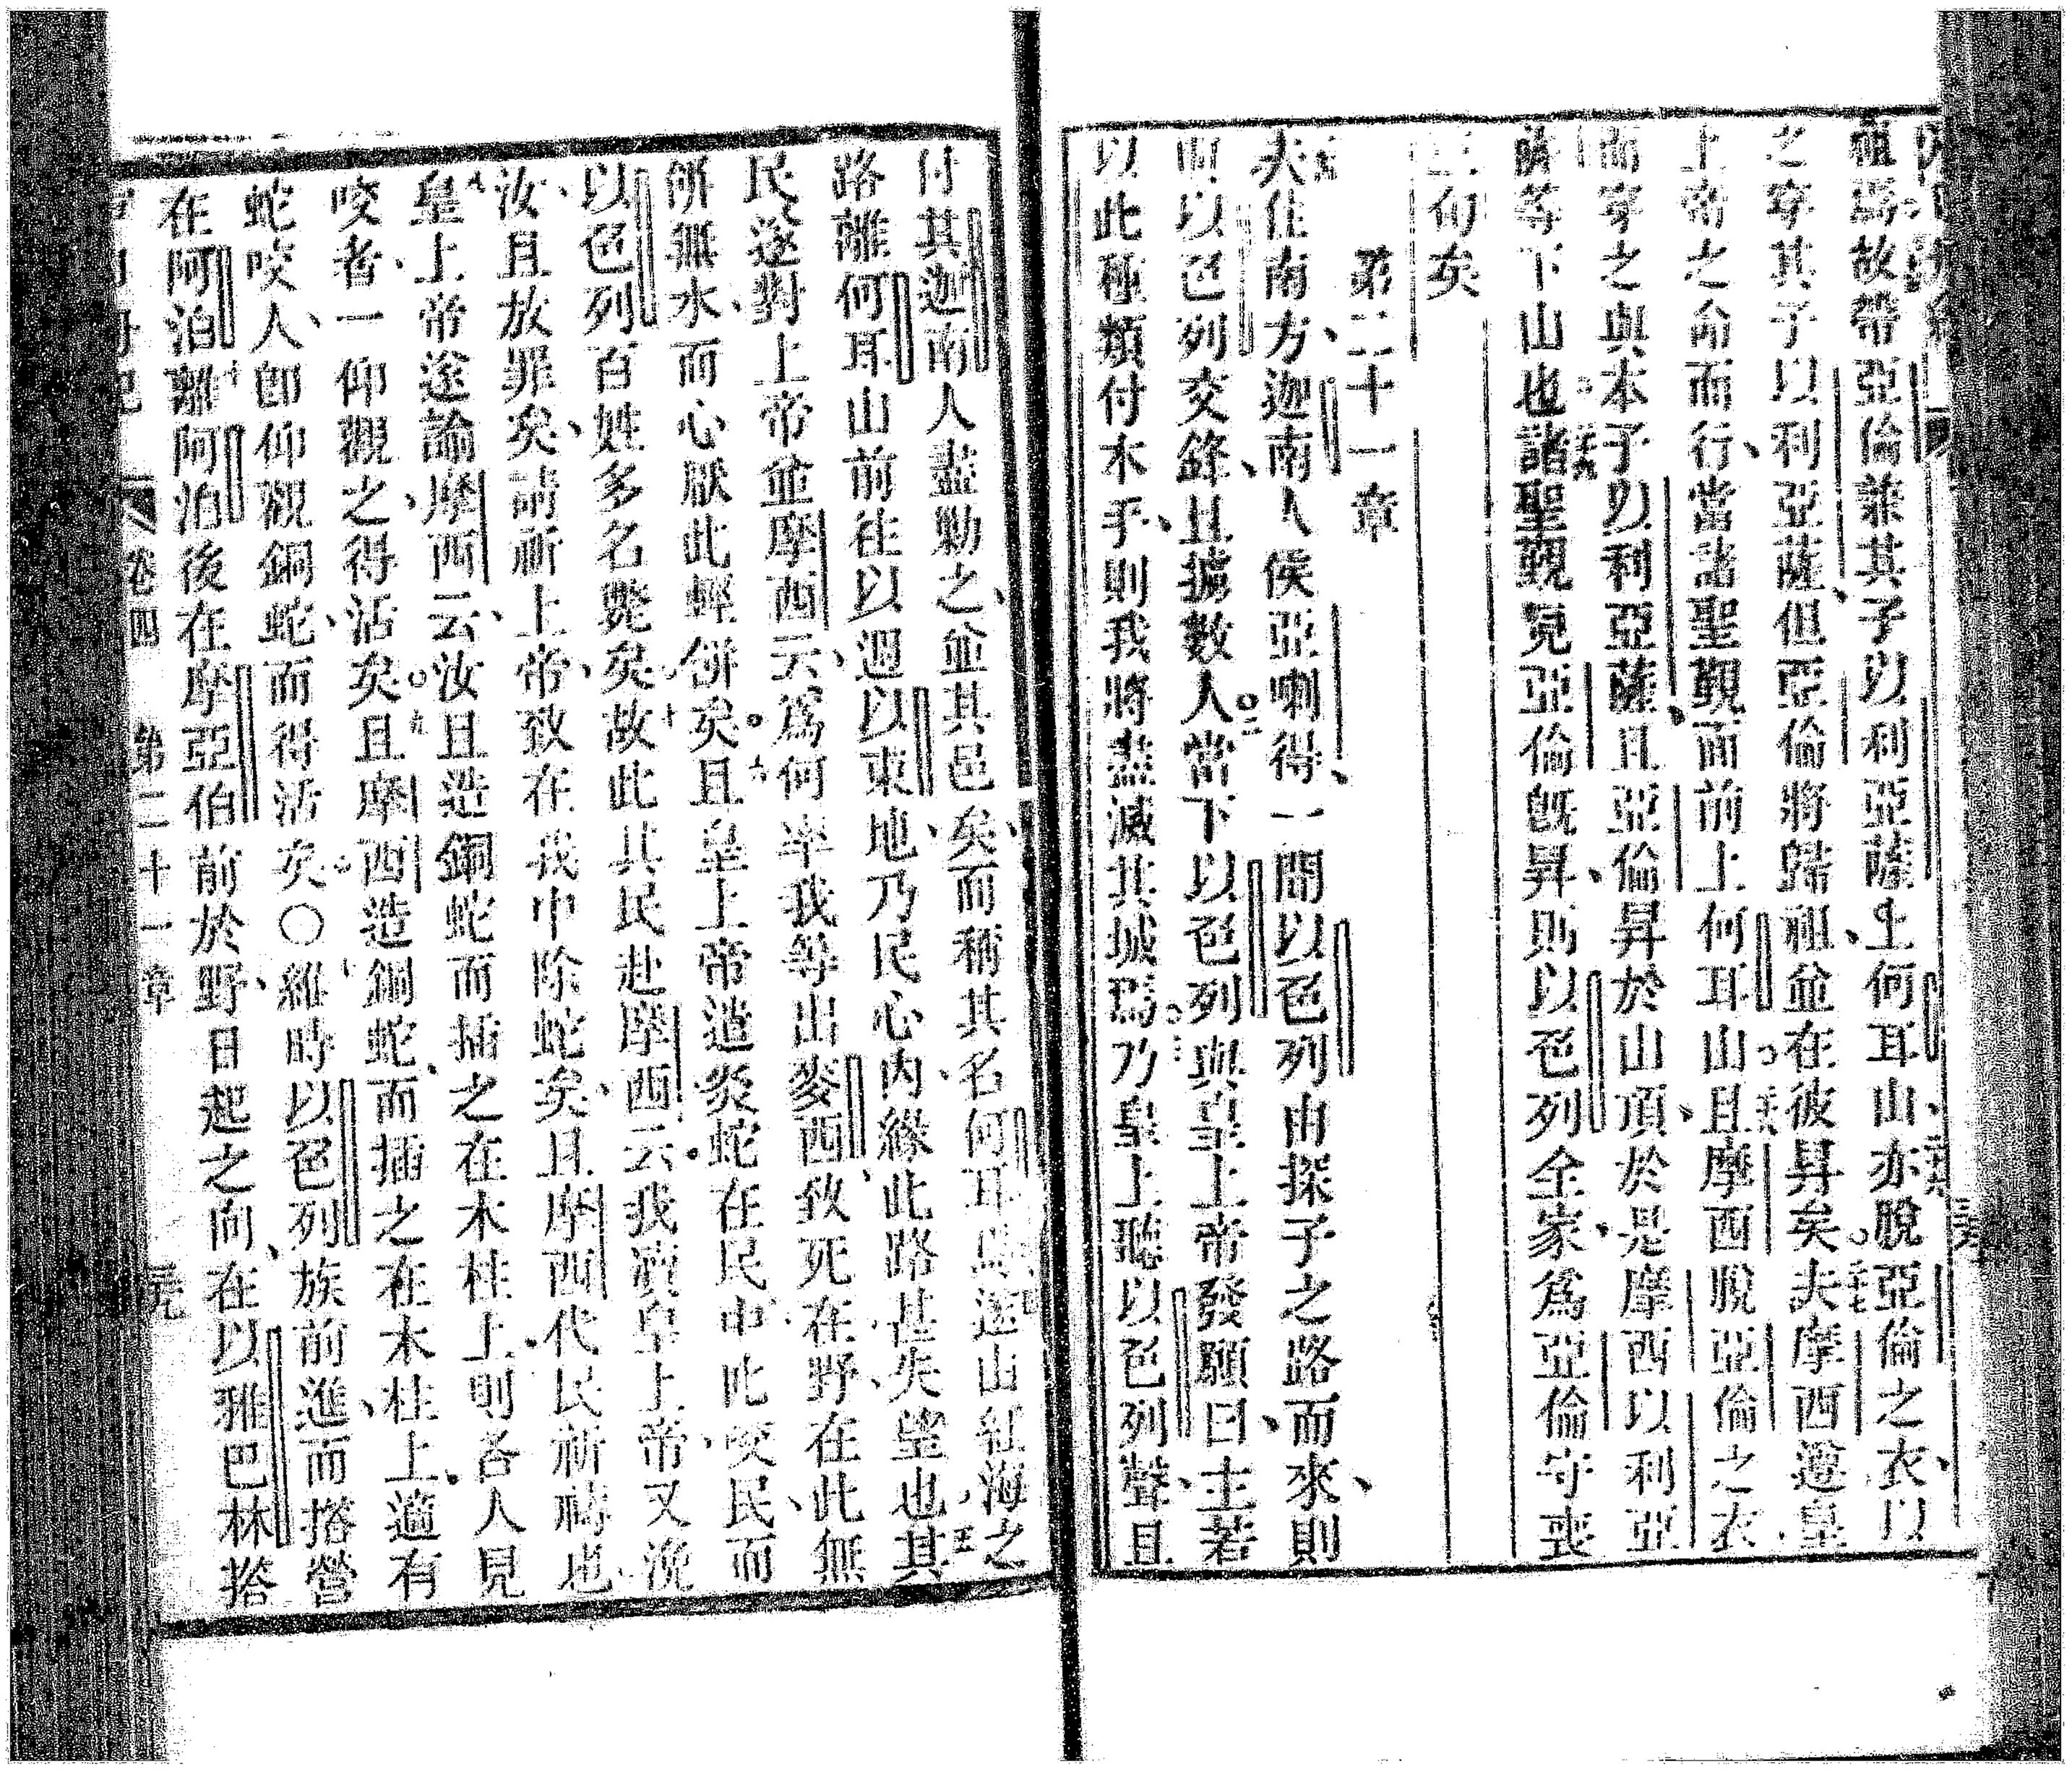 祖焉故帶亞倫兼其子以利亞薩上何耳山亦脫亞倫之衣以
之穿其子以利亞薩但亞倫將歸祖並在彼昇矣夫摩西遵皇
上帝之命而行當諸聖覲而前上何耳山且摩西脫亞倫之衣
而穿之與本子以利亞薩且亞倫昇於山頂於是摩西以利亞
薩等下山也諸聖覲見亞倫旣昇則以色列全家爲亞倫守喪
三旬矣
第二十一章
夫住南方迦南人侯亞喇得一聞以色列由探子之路而來則
以色列交鋒且擄數人當下以色列與皇上帝發願曰主若
以此種類付本手則我將盡滅其城焉乃皇上聽以色列聲且
付其迦南人盡勦之並其邑矣而稱其名何耳馬遂由何耳山紅海之
路離何耳山前往以週以東地乃民心內緣此路甚失望也其
民遂對上帝並摩西云爲何率我等出麥西致死在野在此無
餅無水而心厭此輕餅矣且皇上帝遣炎蛇在民中此咬民而
以色列百姓多名斃矣故此其民赴摩西云我瀆皇上帝又浼
汝且放罪矣請祈上帝致在我中除蛇矣且摩西代民祈禱也
皇上帝遂諭摩西云汝且造銅蛇而插之在木柱上則各人見
咬者一仰觀之得活矣且摩西造銅蛇而插之在木柱上適有
蛇咬人卽仰觀銅蛇而得活矣〇維時以色列族前進而搭營
在阿泊離阿泊後在摩亞伯前於野日起之向在以雅巴林搭
卷四 第二十一章